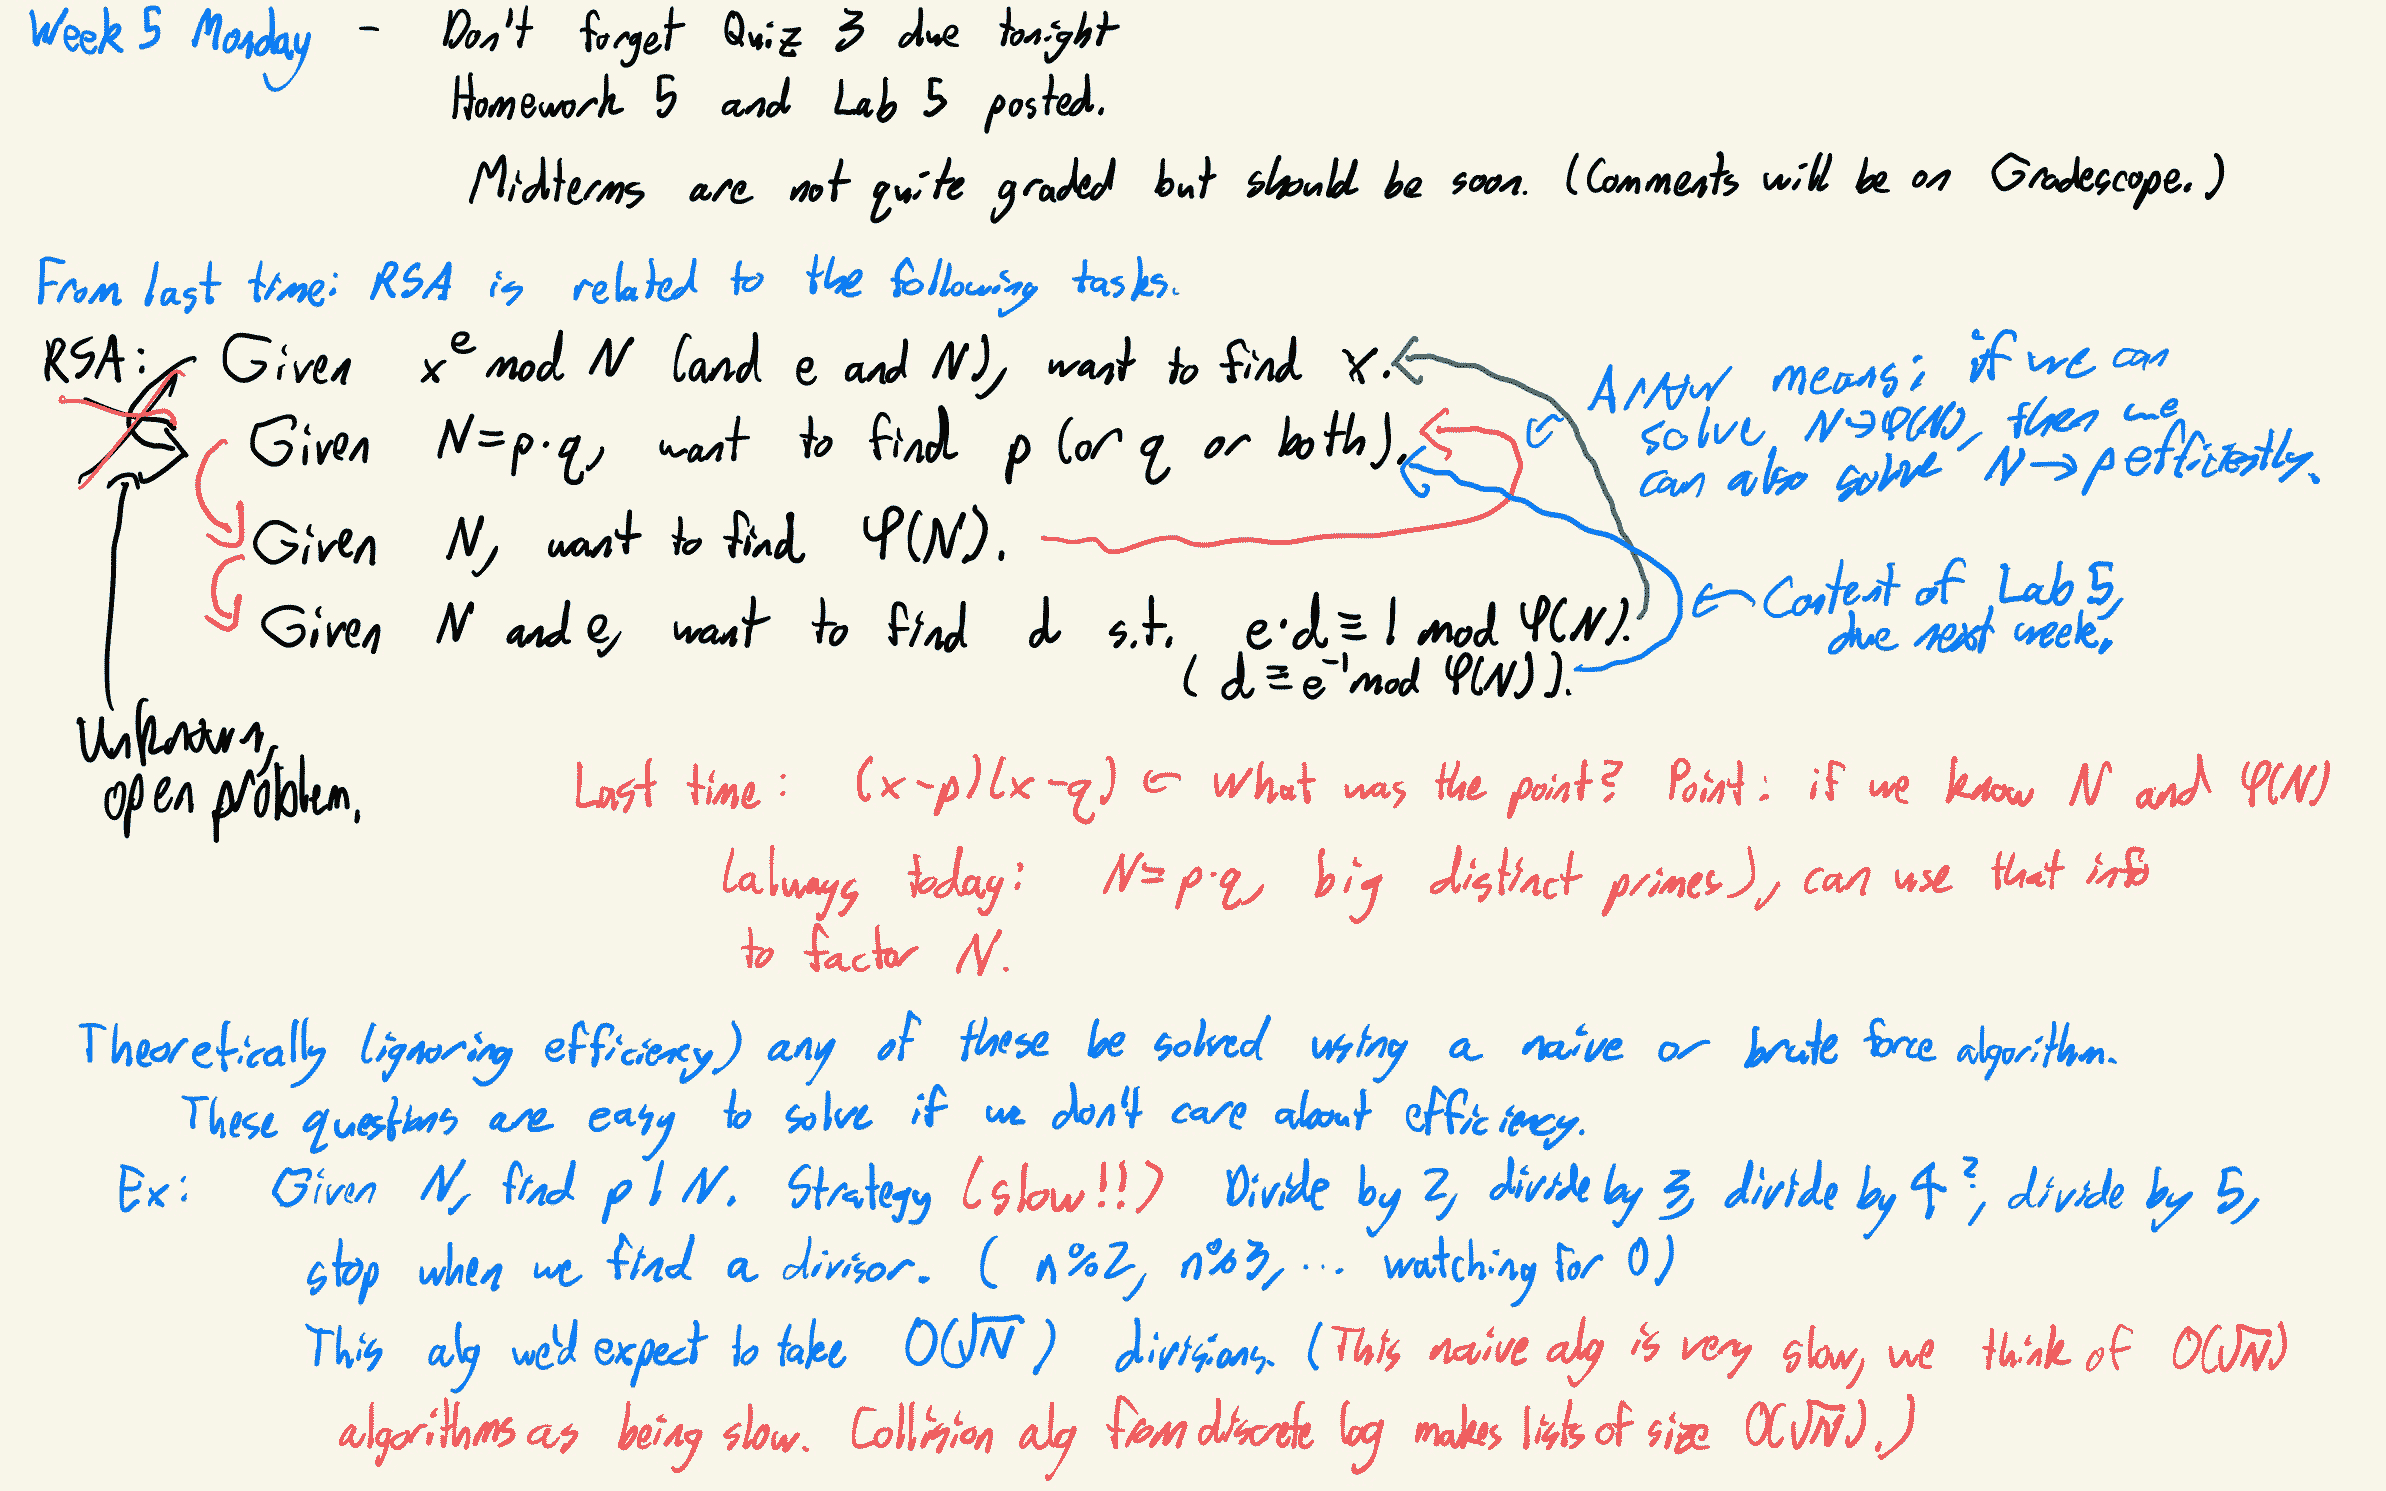 Week 5 Monday - Don't forget Quiz 3 due tonight
Homework 5 and Lab 5 posted.
Midterms are not quite graded but should be soon. (Comments will be on Gradescope.)
From last time: RSA is related to the following tasks.
RSA: Given x^e mod N (and e and N), want to find x.
Given N=p·q, want to find p (or q or both).
Given N, want to find φ(N).
Given N and e, want to find d s.t. e·d≡1 mod φ(N).
(d≡e^-1 mod φ(N)).
Arrow means: if we can
solve N→φ(N), then we
can also solve N→p efficiently.
Content of Lab 5,
due next week.
Unknown,
open problem.
Last time: (x-p)(x-q) ← What was the point? Point: if we know N and φ(N)
(always today: N=p·q, big distinct primes), can use that info
to factor N.
Theoretically (ignoring efficiency) any of these be solved using a naive or brute force algorithm.
These questions are easy to solve if we don't care about efficiency.
Ex: Given N, find p|N. Strategy (slow!!) Divide by 2, divide by 3, divide by 4?, divide by 5,
stop when we find a divisor. (n%2, n%3, ... watching for 0)
This alg we'd expect to take O(√N) divisions. (This naive alg is very slow, we think of O(√N)
algorithms as being slow. Collision alg from discrete log makes lists of size O(√N).)